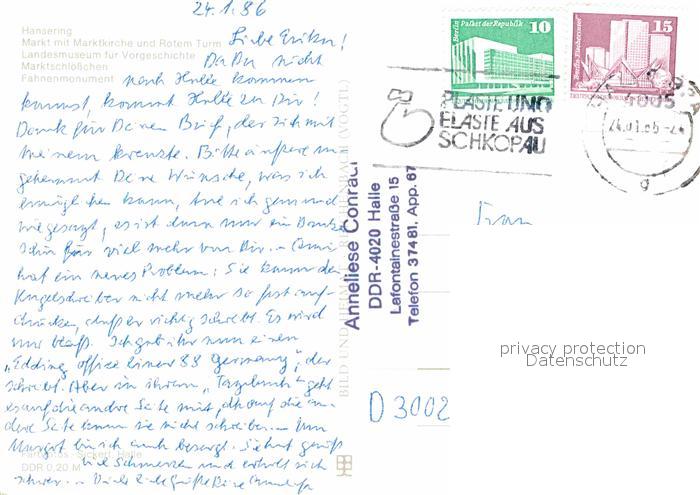 24.1.86
Hansering
Markt mit Marktkirche und Rotem Turm
Landesmuseum für Vorgeschichte
Marktschlößchen
Fahnenmonument
Liebe Erika!
Da Du nicht
nach Halle kommen
kannst, kommt Halle zu Dir!
Dank für Deinen Brief, der sich mit
meinem kreuzte. Bitte äußere
Deine Wünsche, was ich
ermöglichen kann, tue ich gern und
wie gesagt, es ist dann nur ein Danke-
schön für viel mehr von Dir. –
hat ein neues Problem: Sie kann den
Kugelschreiber nicht mehr so fest auf-
drücken, daß er richtig schreibt. Es wird
nur blaß. Ich gab ihr nun einen
„Edding office liner 88 Germany", der
schreibt. Aber in ihrem „Tagebuch" geht
es auf die andre Seite mit, dh auf die an-
dere Seite kann sie nicht schreiben. – Um
Margot bin ich auch besorgt. Sie hat gewiß
viel Schmerzen und
schwer. – Dir liebe Grüße Deine Anneliese
Sickert, Halle
DDR 0,20 M
BILD UND HEIMAT REICHENBACH (VOGTL)
Anneliese Conrad
DDR-4020 Halle
Lafontainestraße 15
Telefon 37481, App. 67
Berlin Palast der Republik
10
15
PLASTE UND
ELASTE AUS
SCHKOPAU
24.01.86-24
g
Frau
privacy protection
Datenschutz
D 3002